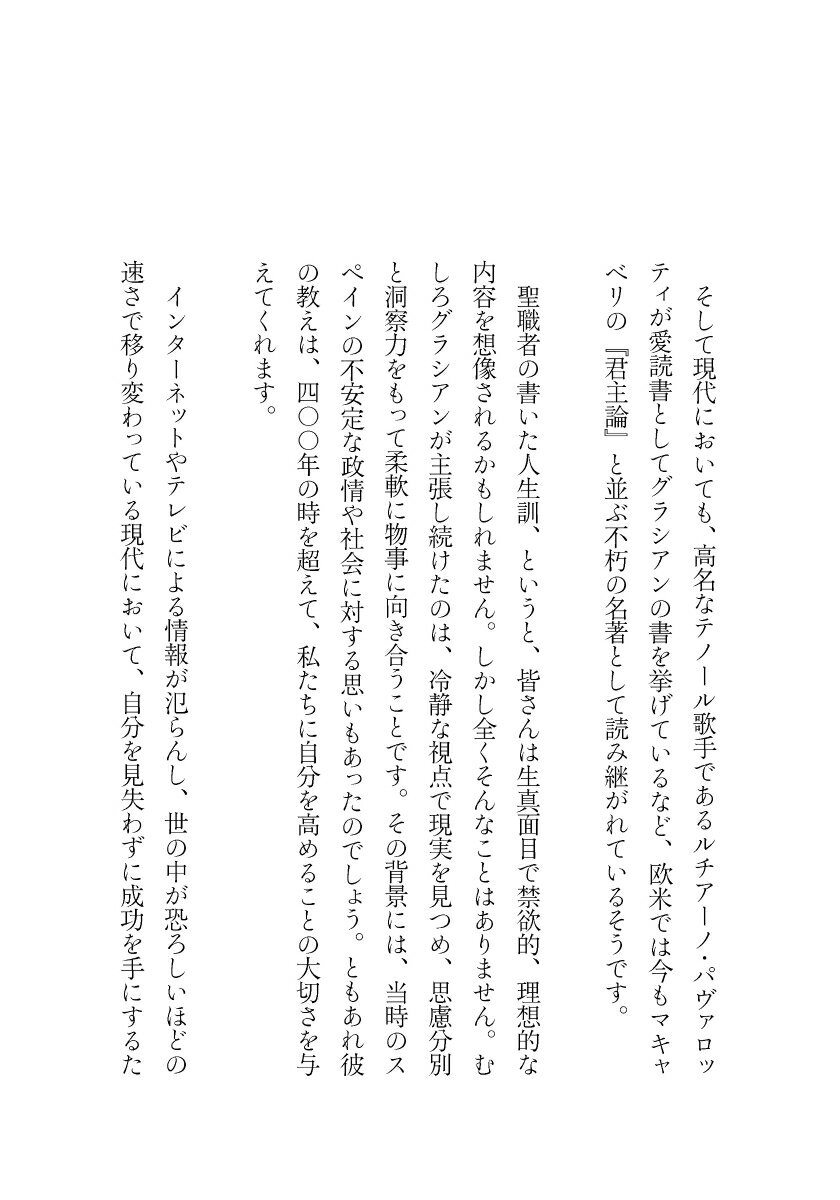 そして現代においても、高名なテノール歌手であるルチアーノ・パヴァロッ
ティが愛読書としてグラシアンの書を挙げているなど、欧米では今もマキャ
ベリの『君主論』と並ぶ不朽の名著として読み継がれているそうです。
聖職者の書いた人生訓、というと、皆さんは生真面目で禁欲的、理想的な
内容を想像されるかもしれません。しかし全くそんなことはありません。む
しろグラシアンが主張し続けたのは、冷静な視点で現実を見つめ、思慮分別
と洞察力をもって柔軟に物事に向き合うことです。その背景には、当時のス
ペインの不安定な政情や社会に対する思いもあったのでしょう。ともあれ彼
の教えは、四〇〇年の時を超えて、私たちに自分を高めることの大切さを与
えてくれます。
インターネットやテレビによる情報が氾らんし、世の中が恐ろしいほどの
速さで移り変わっている現代において、自分を見失わずに成功を手にするた